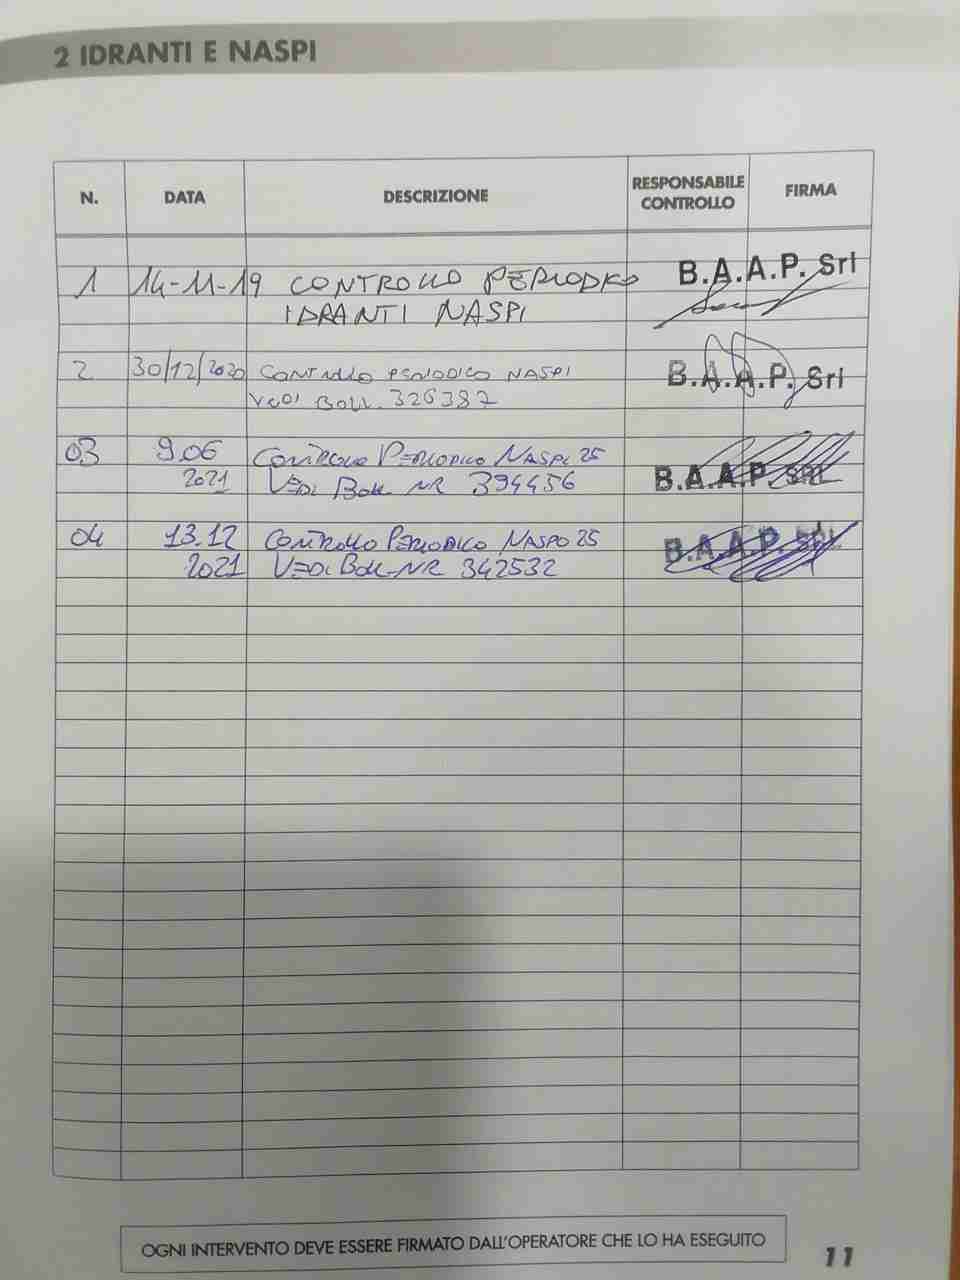 2 IDRANTI E NASPI
N. DATA DESCRIZIONE RESPONSABILE CONTROLLO FIRMA
1 14-11-19 CONTROLLO PERIODICO B.A.A.P. Srl
IDRANTI NASPI
2 30/12/2020 CONTROLLO PERIODICO NASPI B.A.A.P. Srl
VEDI BOLL. 326387
03 9.06 CONTROLLO PERIODICO NASPI 25 B.A.A.P. SRL
2021 VEDI BOLL NR 394456
04 13.12 CONTROLLO PERIODICO NASPO 25 B.A.A.P. SRL
2021 VEDI BOLL-NR 342532
OGNI INTERVENTO DEVE ESSERE FIRMATO DALL'OPERATORE CHE LO HA ESEGUITO
11